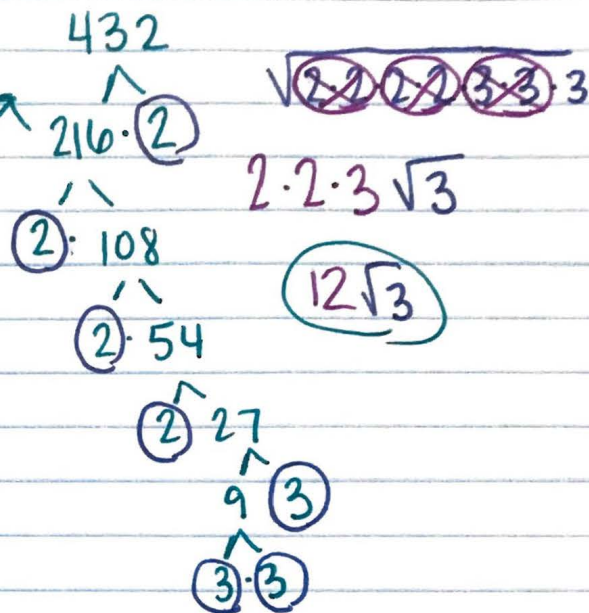 432
216·2
2·108
2·54
2 27
9 3
3·3
√2·2·2·2·3·3·3
2·2·3√3
12√3